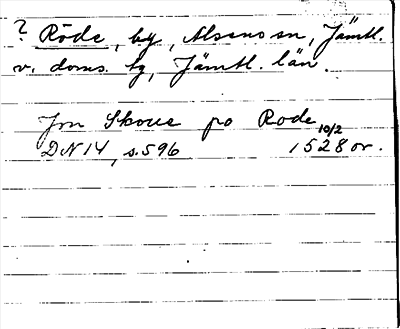 ? Röde, by, Alsens sn, Jämtl.
v. doms. tg, Jämtl. län.
Jon Skoue po Rode
DN 14, s. 596 10/2 1528 or.